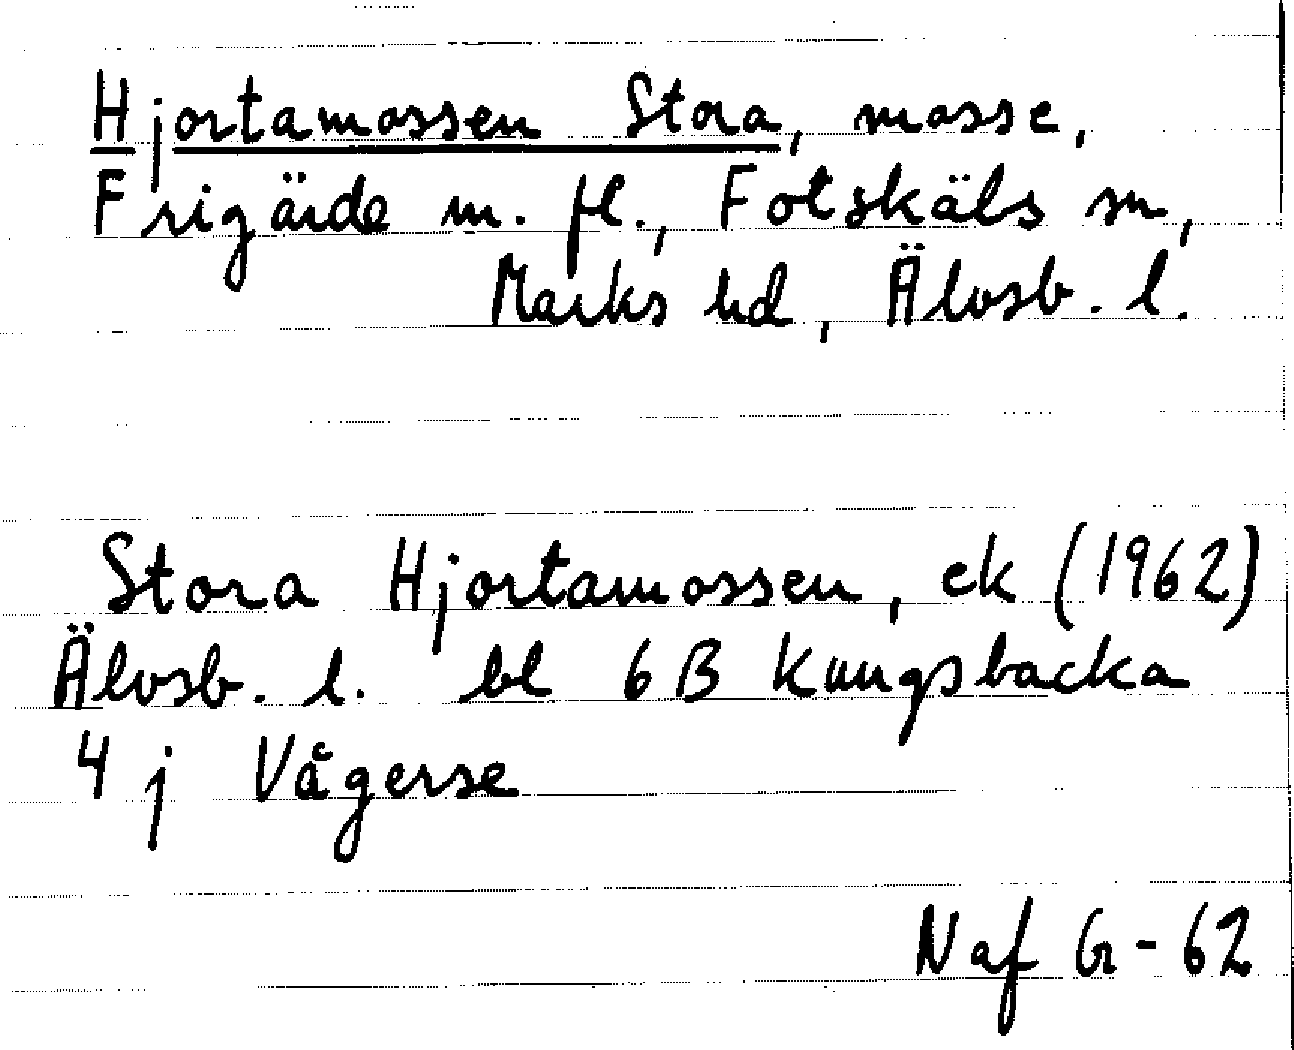 Hjortamossen Stora, mosse,
Frigärde m. fl., Fotskäls sn,
Marks hd, Älvsb. l.
Stora Hjortamossen, ek (1962)
Älvsb. l. bl 6 B Kungsbacka
4 j Vågerse
Naf Gr-62